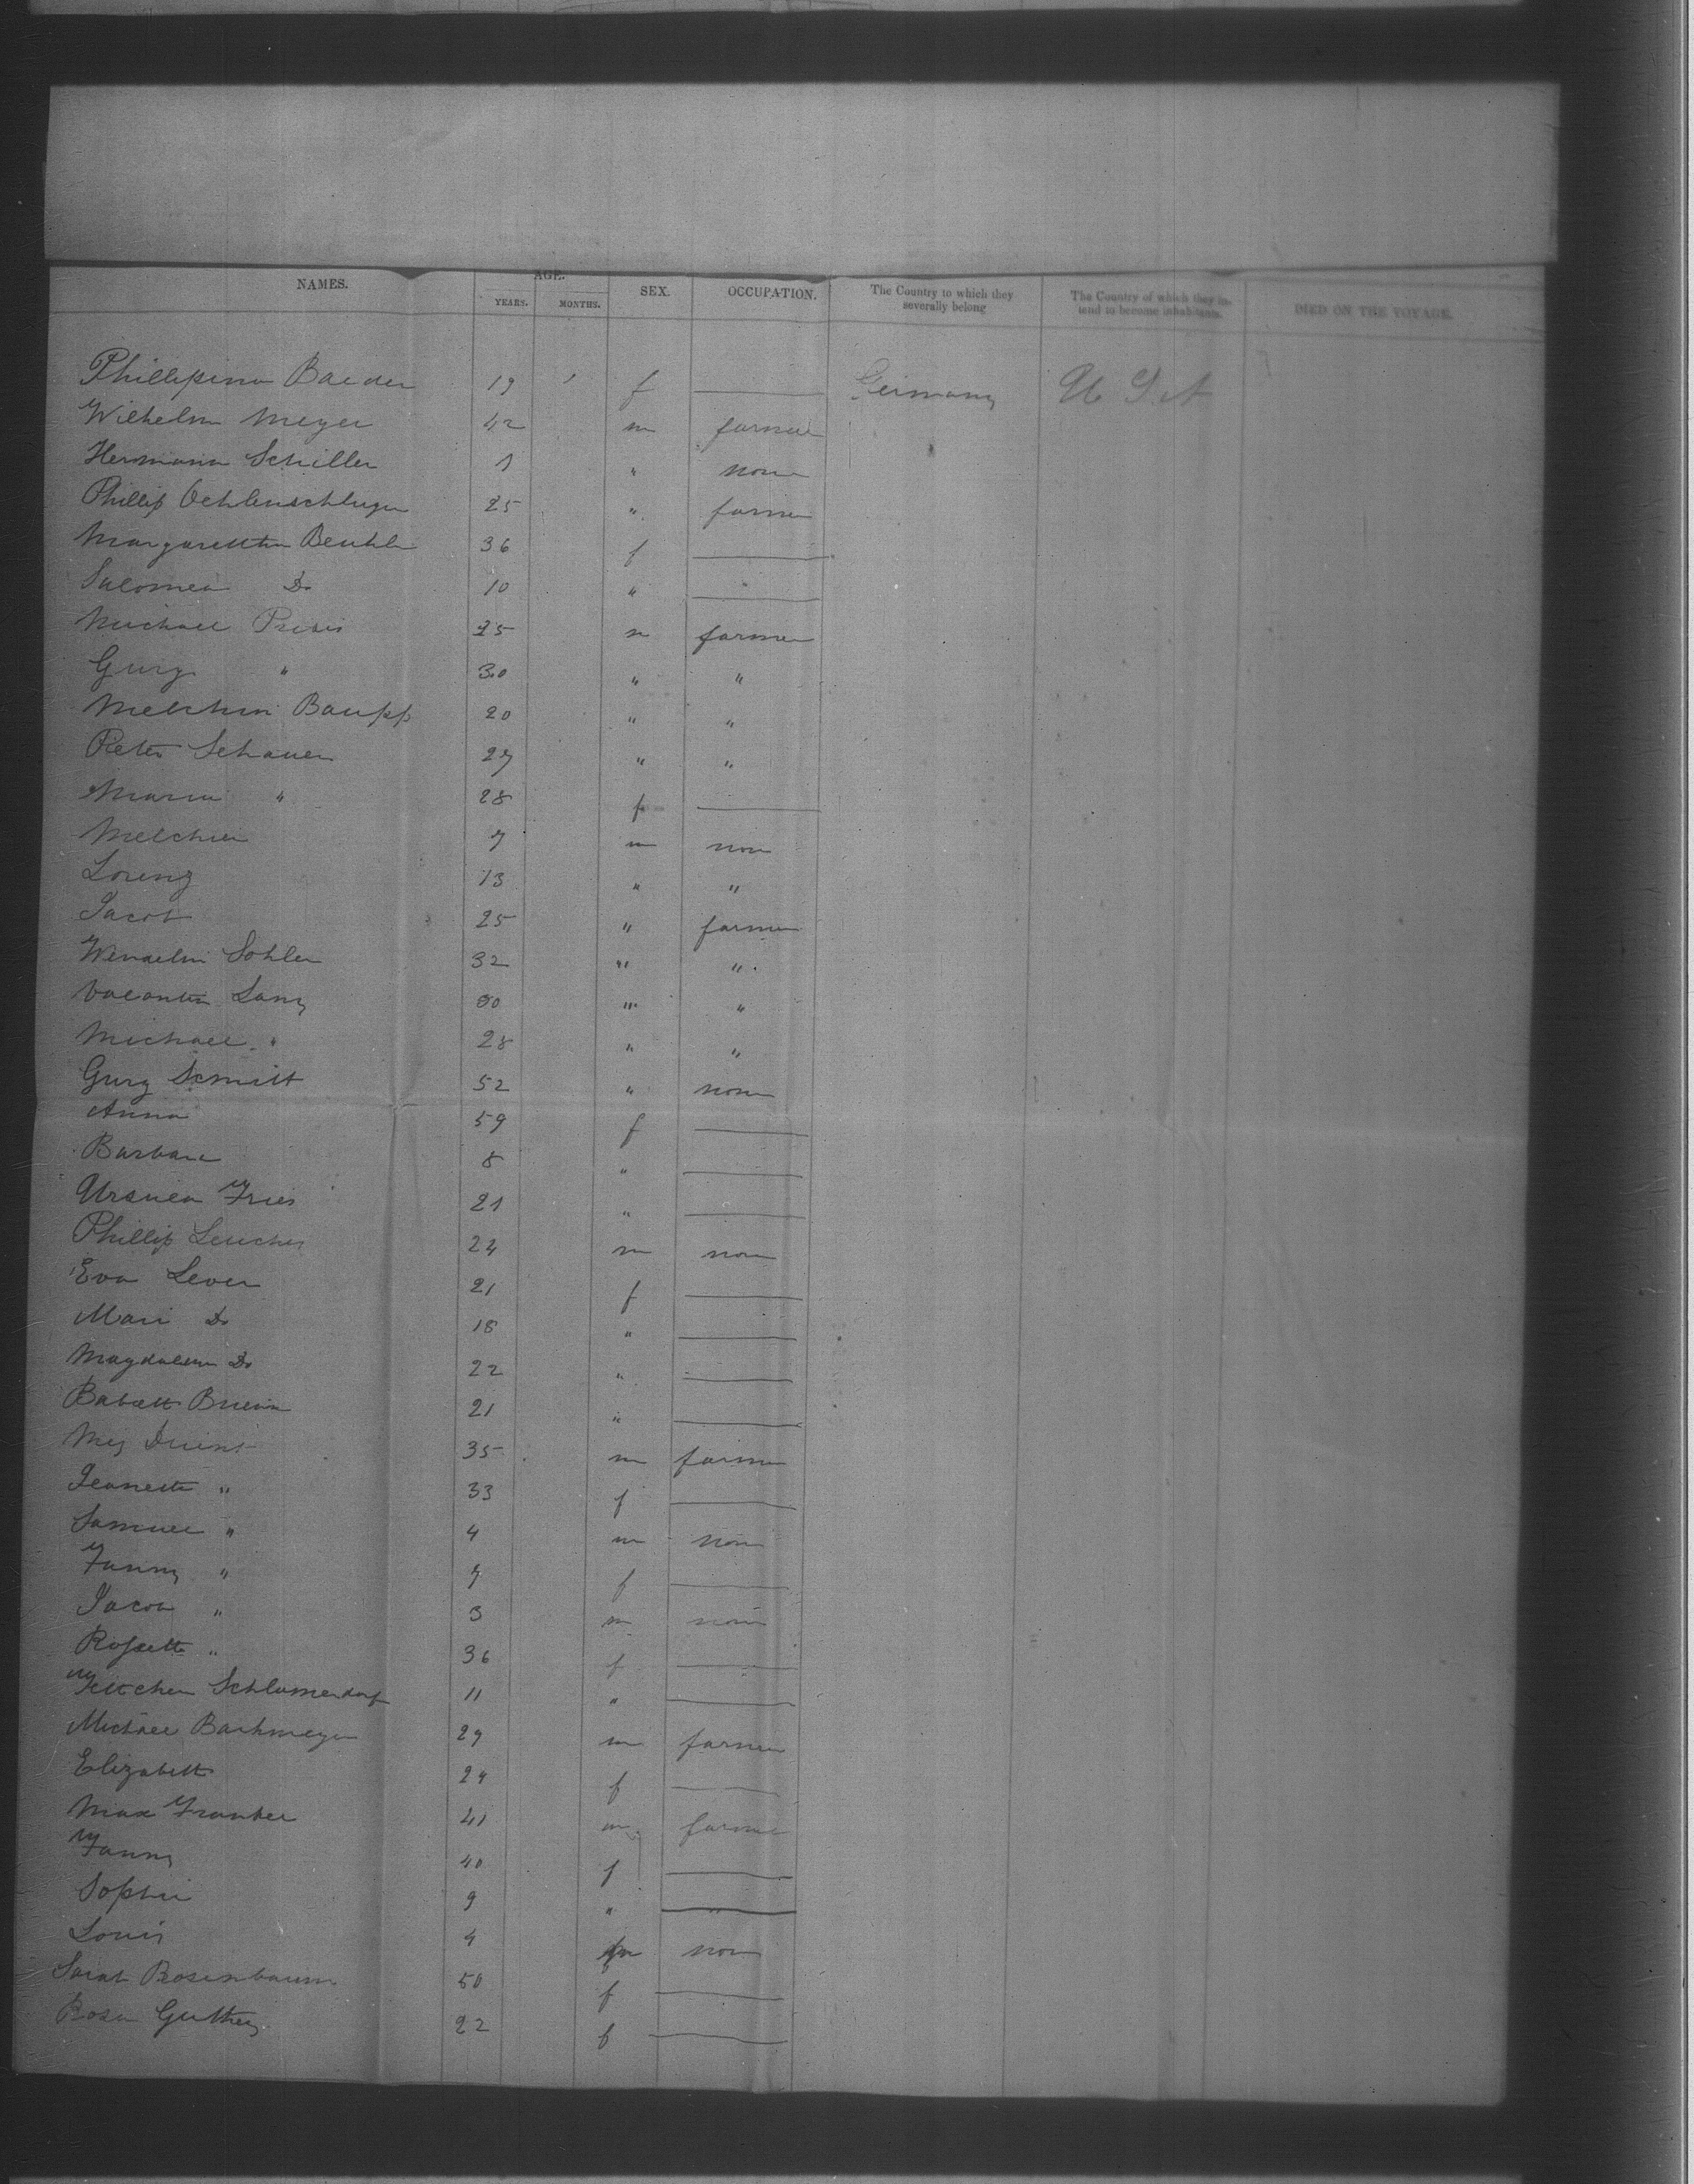 NAMES. AGE. YEARS. MONTHS. SEX. OCCUPATION. The Country to which they severally belong The Country of which they intend to become inhabitants. DIED ON THE VOYAGE.
Phillipina Baeder 19 f — Germany U S A
Wilhelm Meyer 42 m farmer
Hermann Schiller 1 " none
Phillip Oehlenschluger 25 " farmer
Margarettha 36 f —
Salomea Do 10 " —
Michael 25 m farmer
Gurg " 30 " "
Melchior Baupp 20 " "
Peter Schauer 27 " "
Maria " 28 f —
Melchior 7 m non
Lorenz 13 " "
Jacob 25 " farmer
Wendelin Sohler 32 " "
Valantin Lang " "
Michael " 28 " "
Gurg Scmitt 52 " none
Anna 59 f —
Barbara 8 " —
Ursula Fries 21 " —
Phillip 24 m non
Eva Lever 21 f —
Mari Do 18 " —
Magdalena Do 22 " —
Babett 21 " —
35 m farmer
Jeanette " 33 f —
Samuel " 4 m non
Fanny " 7 f —
Jacob " 3 m non
Rosette " 36 f —
Schlamendorf 11 " —
Michael Bachmeyer 29 m farmer
Elizabeth 24 f —
Max Frankel 41 m farmer
Fanny 40 f —
Sophie 9 " —
Louis 4 m non
Sarah Rosenbaum 50 f —
Rosa 22 f —